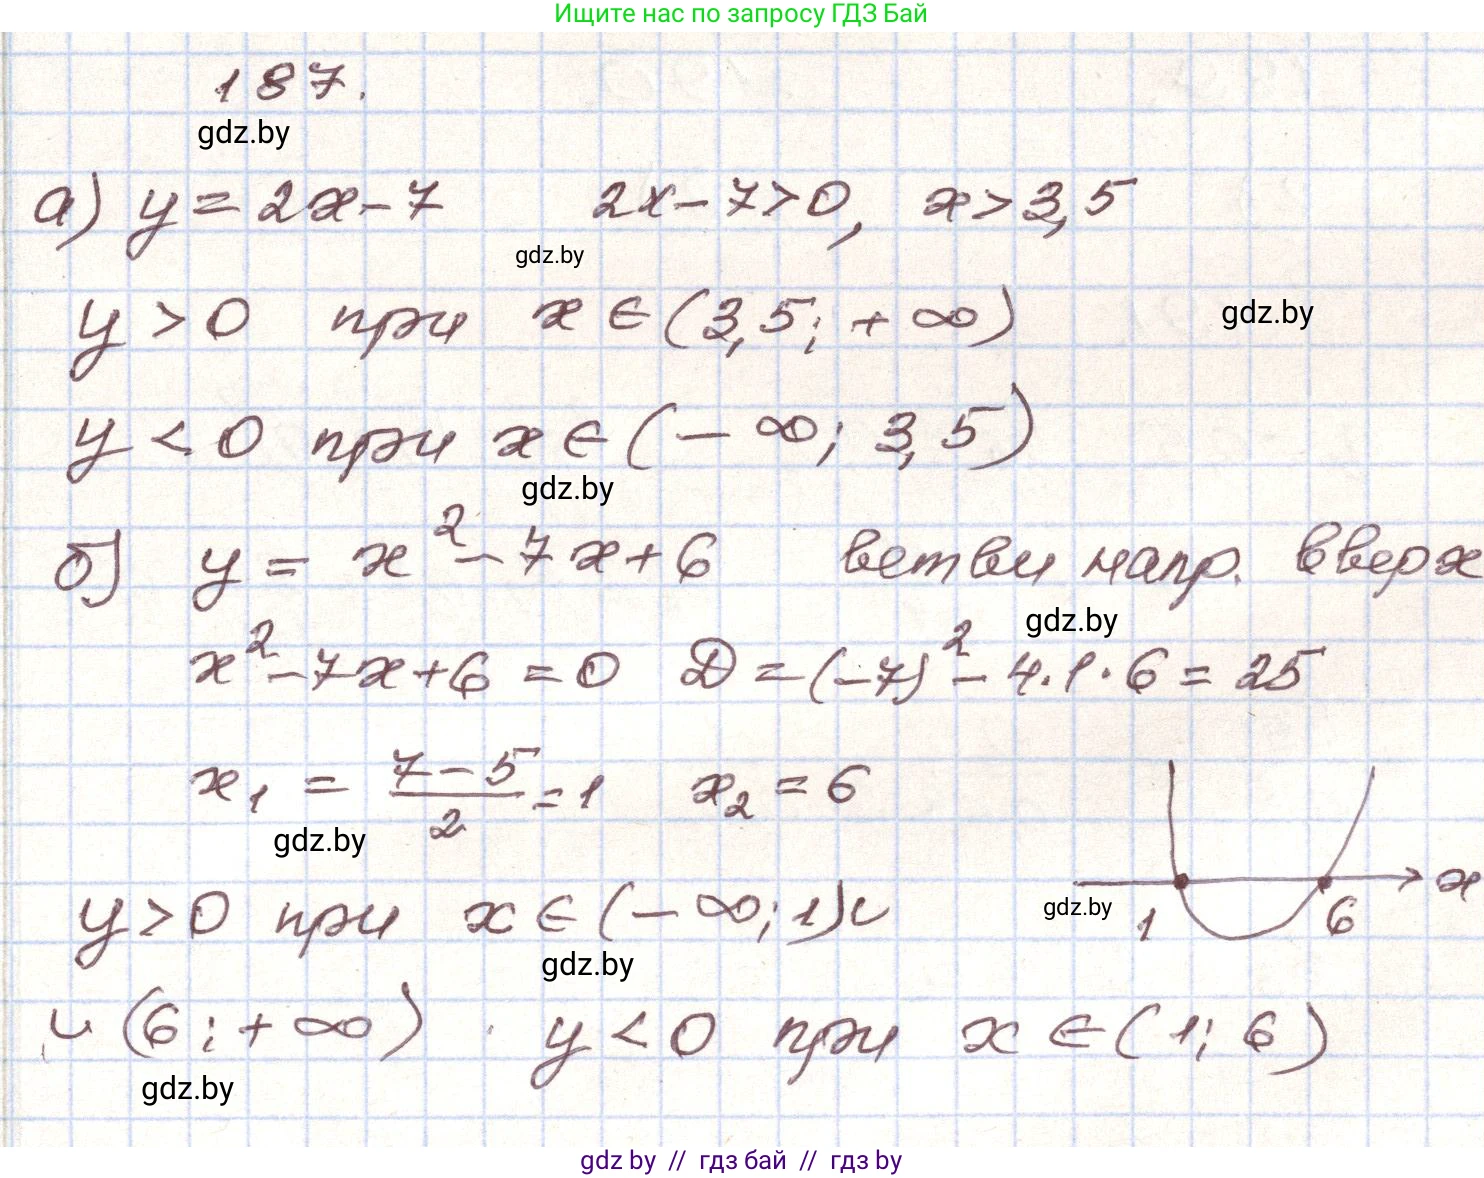 Ищите нас по запросу ГДЗ Бай
187.
gdz.by
а) y = 2x - 7 2x - 7 > 0, x > 3,5
gdz.by
y > 0 при x ∈ (3,5; + ∞)
gdz.by
y < 0 при x ∈ (- ∞; 3,5)
gdz.by
б) y = x² - 7x + 6 ветви напр. вверх
gdz.by
x² - 7x + 6 = 0 D = (-7)² - 4·1·6 = 25
x₁ = (7 - 5)/2 = 1 x₂ = 6
gdz.by
x
gdz.by
1 6
y > 0 при x ∈ (- ∞; 1) ∪
gdz.by
∪ (6; + ∞) y < 0 при x ∈ (1; 6)
gdz.by
gdz by // гдз бай // гдз by